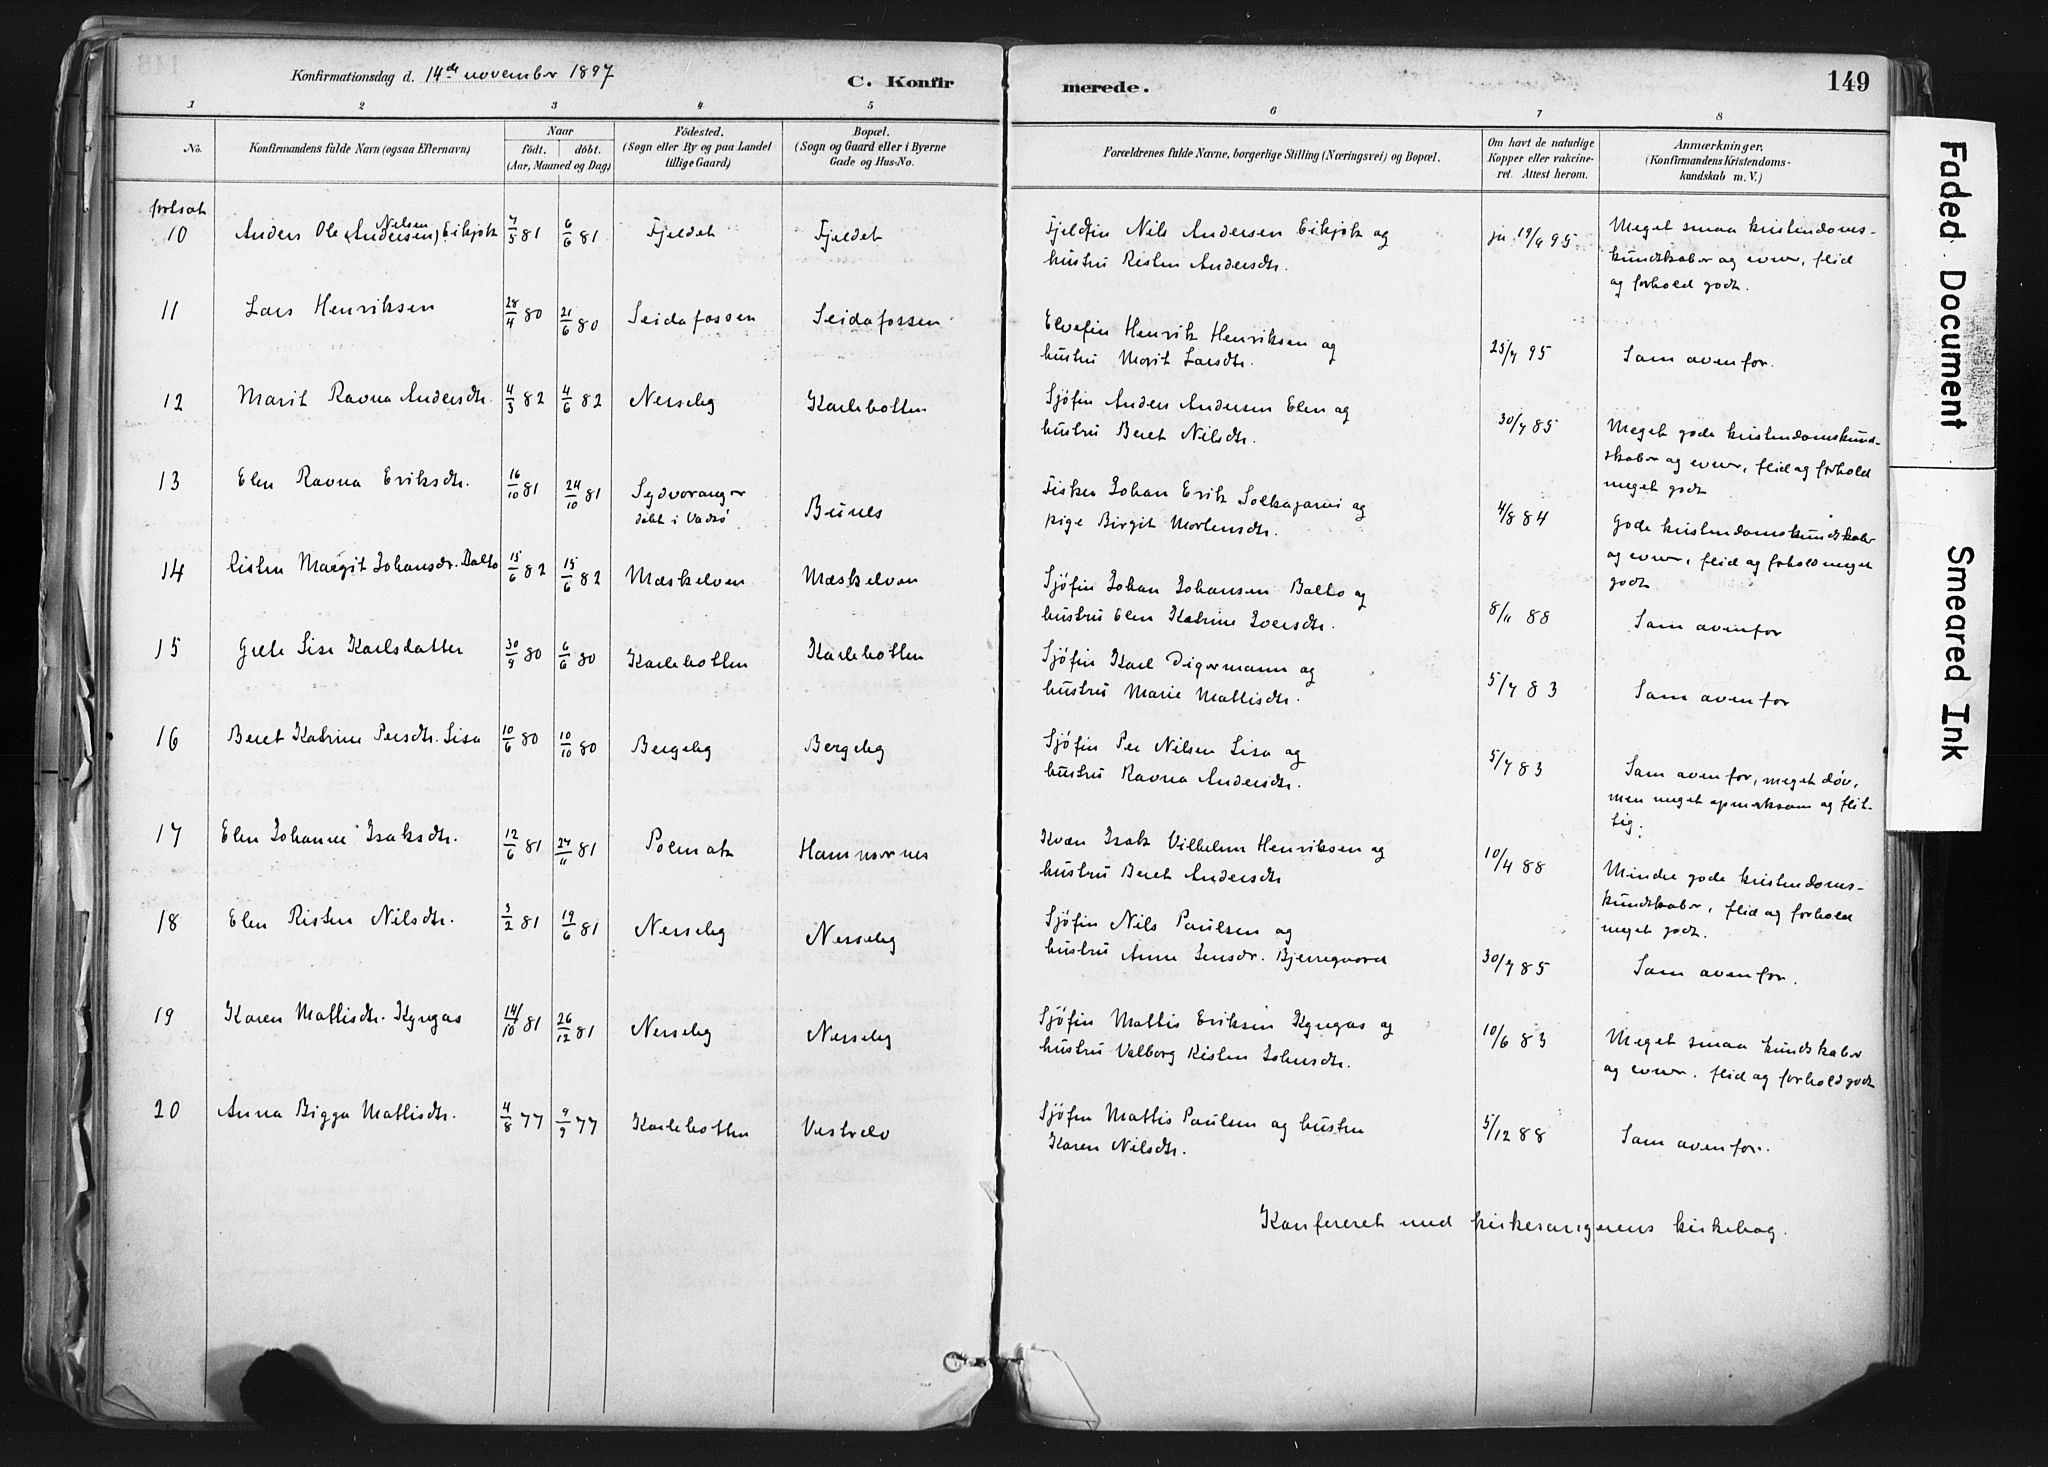 Konfirmationsdag d. 14de november 1897
C. Konfir
merede.
149
1 2 3 4 5 6 7 8
No.
Konfirmandens fulde Navn (ogsaa Efternavn)
Naar
födt. döbt.
(Aar, Maaned og Dag)
Födested.
(Sogn eller By og paa Landet
tillige Gaard)
Bopæl.
(Sogn og Gaard eller i Byerne
Gade og Hus-No.
Forældrenes fulde Navne, borgerlige Stilling (Næringsvei) og Bopæl.
Om havt de naturlige
Kopper eller vakcine-
ret. Attest herom.
Anmærkninger.
(Konfirmandens Kristendoms-
kundskab m. V.)
fortsat
10 Anders Ole (Andersen) Nilsen Eikjok 7/5 81 6/6 81 Fjeldet Fjeldet
Fjeldfin Nils Andersen Eikjok og
hustru Risten Andersdtr.
19/9 95
Meget smaa kristendoms-
kundskaber og evner, flid
og forhold godt.
11 Lars Henriksen 28/4 80 21/6 80 Seidafossen Seidafossen
Elvefin Henrik Henriksen og
hustru Marit Larsdtr.
25/7 95
Som ovenfor.
12 Marit Ravna Andersdtr. 4/3 82 4/6 82 Nesseby Karlebotten
Sjöfin Anders Andersen Elen og
hustru Beret Nilsdtr.
30/7 85
Meget gode kristendomskund-
skaber og evner, flid og forhold
meget godt
13 Elen Ravna Eriksdtr. 16/10 81 24/10 81 Sydvaranger
döbt i Vadsö
Bunes
Fisker Johan Erik og
pige Birgit Mortensdtr.
4/8 84
Gode kristendomskundskaber
og evner, flid og forhold meget
godt
14 Risten Margit Johansdr. Balto 15/6 82 15/6 82 Mæskelven Mæskelven
Sjöfin Johan Johansen Balto og
hustru Elen Katrine Iversdtr.
8/11 88
Som ovenfor
15 Grete Lise Karlsdatter 30/9 80 6/6 80 Karlebotten Karlebotten
Sjöfin Karl Digermann og
hustru Marie Mattisdtr.
5/7 83
Som ovenfor
16 Beret Katrine Persdtr. Lisa 10/6 80 10/10 80 Bergeby Bergeby
Sjöfin Per Nilsen Lisa og
hustru Ravna Andersdtr.
5/7 83
Som ovenfor, meget döv,
men meget opmerksom og flit-
tig.
17 Elen Johanne Isaksdtr. 12/6 81 27/11 81 Polmak Hamnernes
Kvæn Isak Vilhelm Henriksen og
hustru Beret Andersdtr
10/4 88
Mindre gode kristendoms-
kundskaber, flid og forhold
meget godt.
18 Elen Risten Nilsdtr. 3/2 81 19/6 81 Nesseby Nesseby
Sjöfin Nils Paulsen og
hustru Anne Jensdr. Bjerregaard
30/7 85
Som ovenfor.
19 Karen Mattisdtr. Kyngas 14/10 81 26/12 81 Nesseby Nesseby
Sjöfin Mattis Eriksen Kyngas og
hustru Valborg Risten Johnsdtr.
10/6 83
Meget smaa kundskaber
og evner. flid og forhold godt
20 Anna Bigga Mattisdtr. 4/8 77 9/9 77 Karlebotten Vestrelv
Sjöfin Mattis Paulsen og hustru
Karen Nilsdtr.
5/12 88
Som ovenfor.
Konfereret med kirkesangerens kirkebog.
Faded Document
Smeared Ink